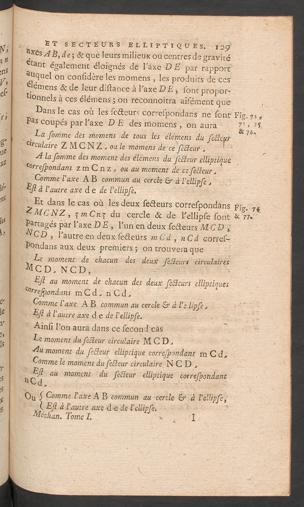 ET SECTEURS ELLIPTIQUES. 129
axes AB, de; & que leurs milieux ou centres de gravité
étant également éloignés de l'axe DE par rapport
auquel on considère les momens, les produits de ces
élémens & de leur distance à l'axe DE, sont propor-
tionnels à ces élémens; on reconnoitra aisément que
Dans le cas où les secteurs correspondans ne sont Fig. 72,
pas coupés par l'axe DE des momens, on aura
La somme des momens de tous les élemens du secteur
circulaire ZMCNZ, ou le momens de ce secteur,
A la somme des momens des élémens du secteur elliptique
correspondant zmCnz, ou au moment de ce secteur,
Comme l'axe AB commun au cercle & à l'ellipse,
Est à l'autre axe de de l'ellipse.
Et dans le cas où les deux secteurs correspondans Fig. 74
ZMCNZ, zmCnz du cercle & de l'ellipse sont & 77.
partagés par l'axe DE, l'un en deux secteurs MCD,
NCD, l'autre en deux secteurs mCd, nCd corres-
pondans aux deux premiers; on trouvera que
Le moment de chacun des deux secteurs circulaires
MCD, NCD,
Est au moment de chacun des deux secteurs elliptiques
correspondans mCd, nCd,
Comme l'axe AB commun au cercle & à l'ellipse,
Est à l'autre axe de de l'ellipse.
Ainsi l'on aura dans ce second cas
Le moment du secteur circulaire MCD,
Au moment du secteur elliptique correspondant mCd,
Comme le moment du secteur circulaire NCD,
Est au moment du secteur elliptique correspondant
nCd.
Ou { Comme l'axe AB commun au cercle & à l'ellipse,
{ Est à l'autre axe de de l'ellipse.
Méchan. Tome I. I